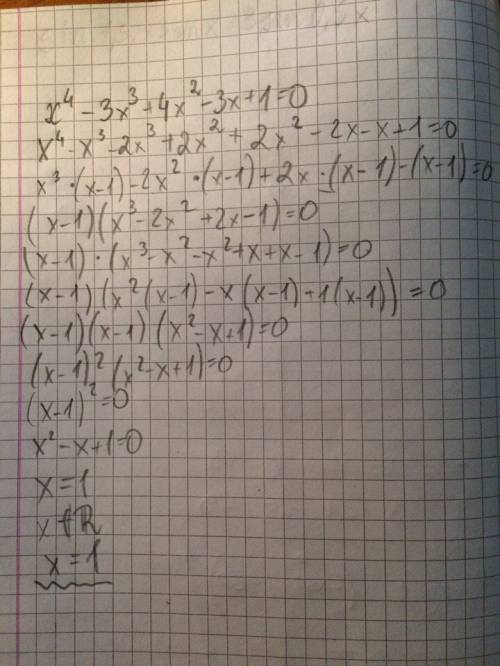 x⁴ - 3x³ + 4x² - 3x + 1 = 0
x⁴ - x³ - 2x³ + 2x² + 2x² - 2x - x + 1 = 0
x³ · (x-1) - 2x² · (x-1) + 2x · (x-1) - (x-1) = 0
(x-1)(x³ - 2x² + 2x - 1) = 0
(x-1) · (x³ - x² - x² + x + x - 1) = 0
(x-1)(x²(x-1) - x(x-1) + 1(x-1)) = 0
(x-1)(x-1)(x² - x + 1) = 0
(x-1)²(x² - x + 1) = 0
(x-1)² = 0
x² - x + 1 = 0
x = 1
x ∉ R
x = 1